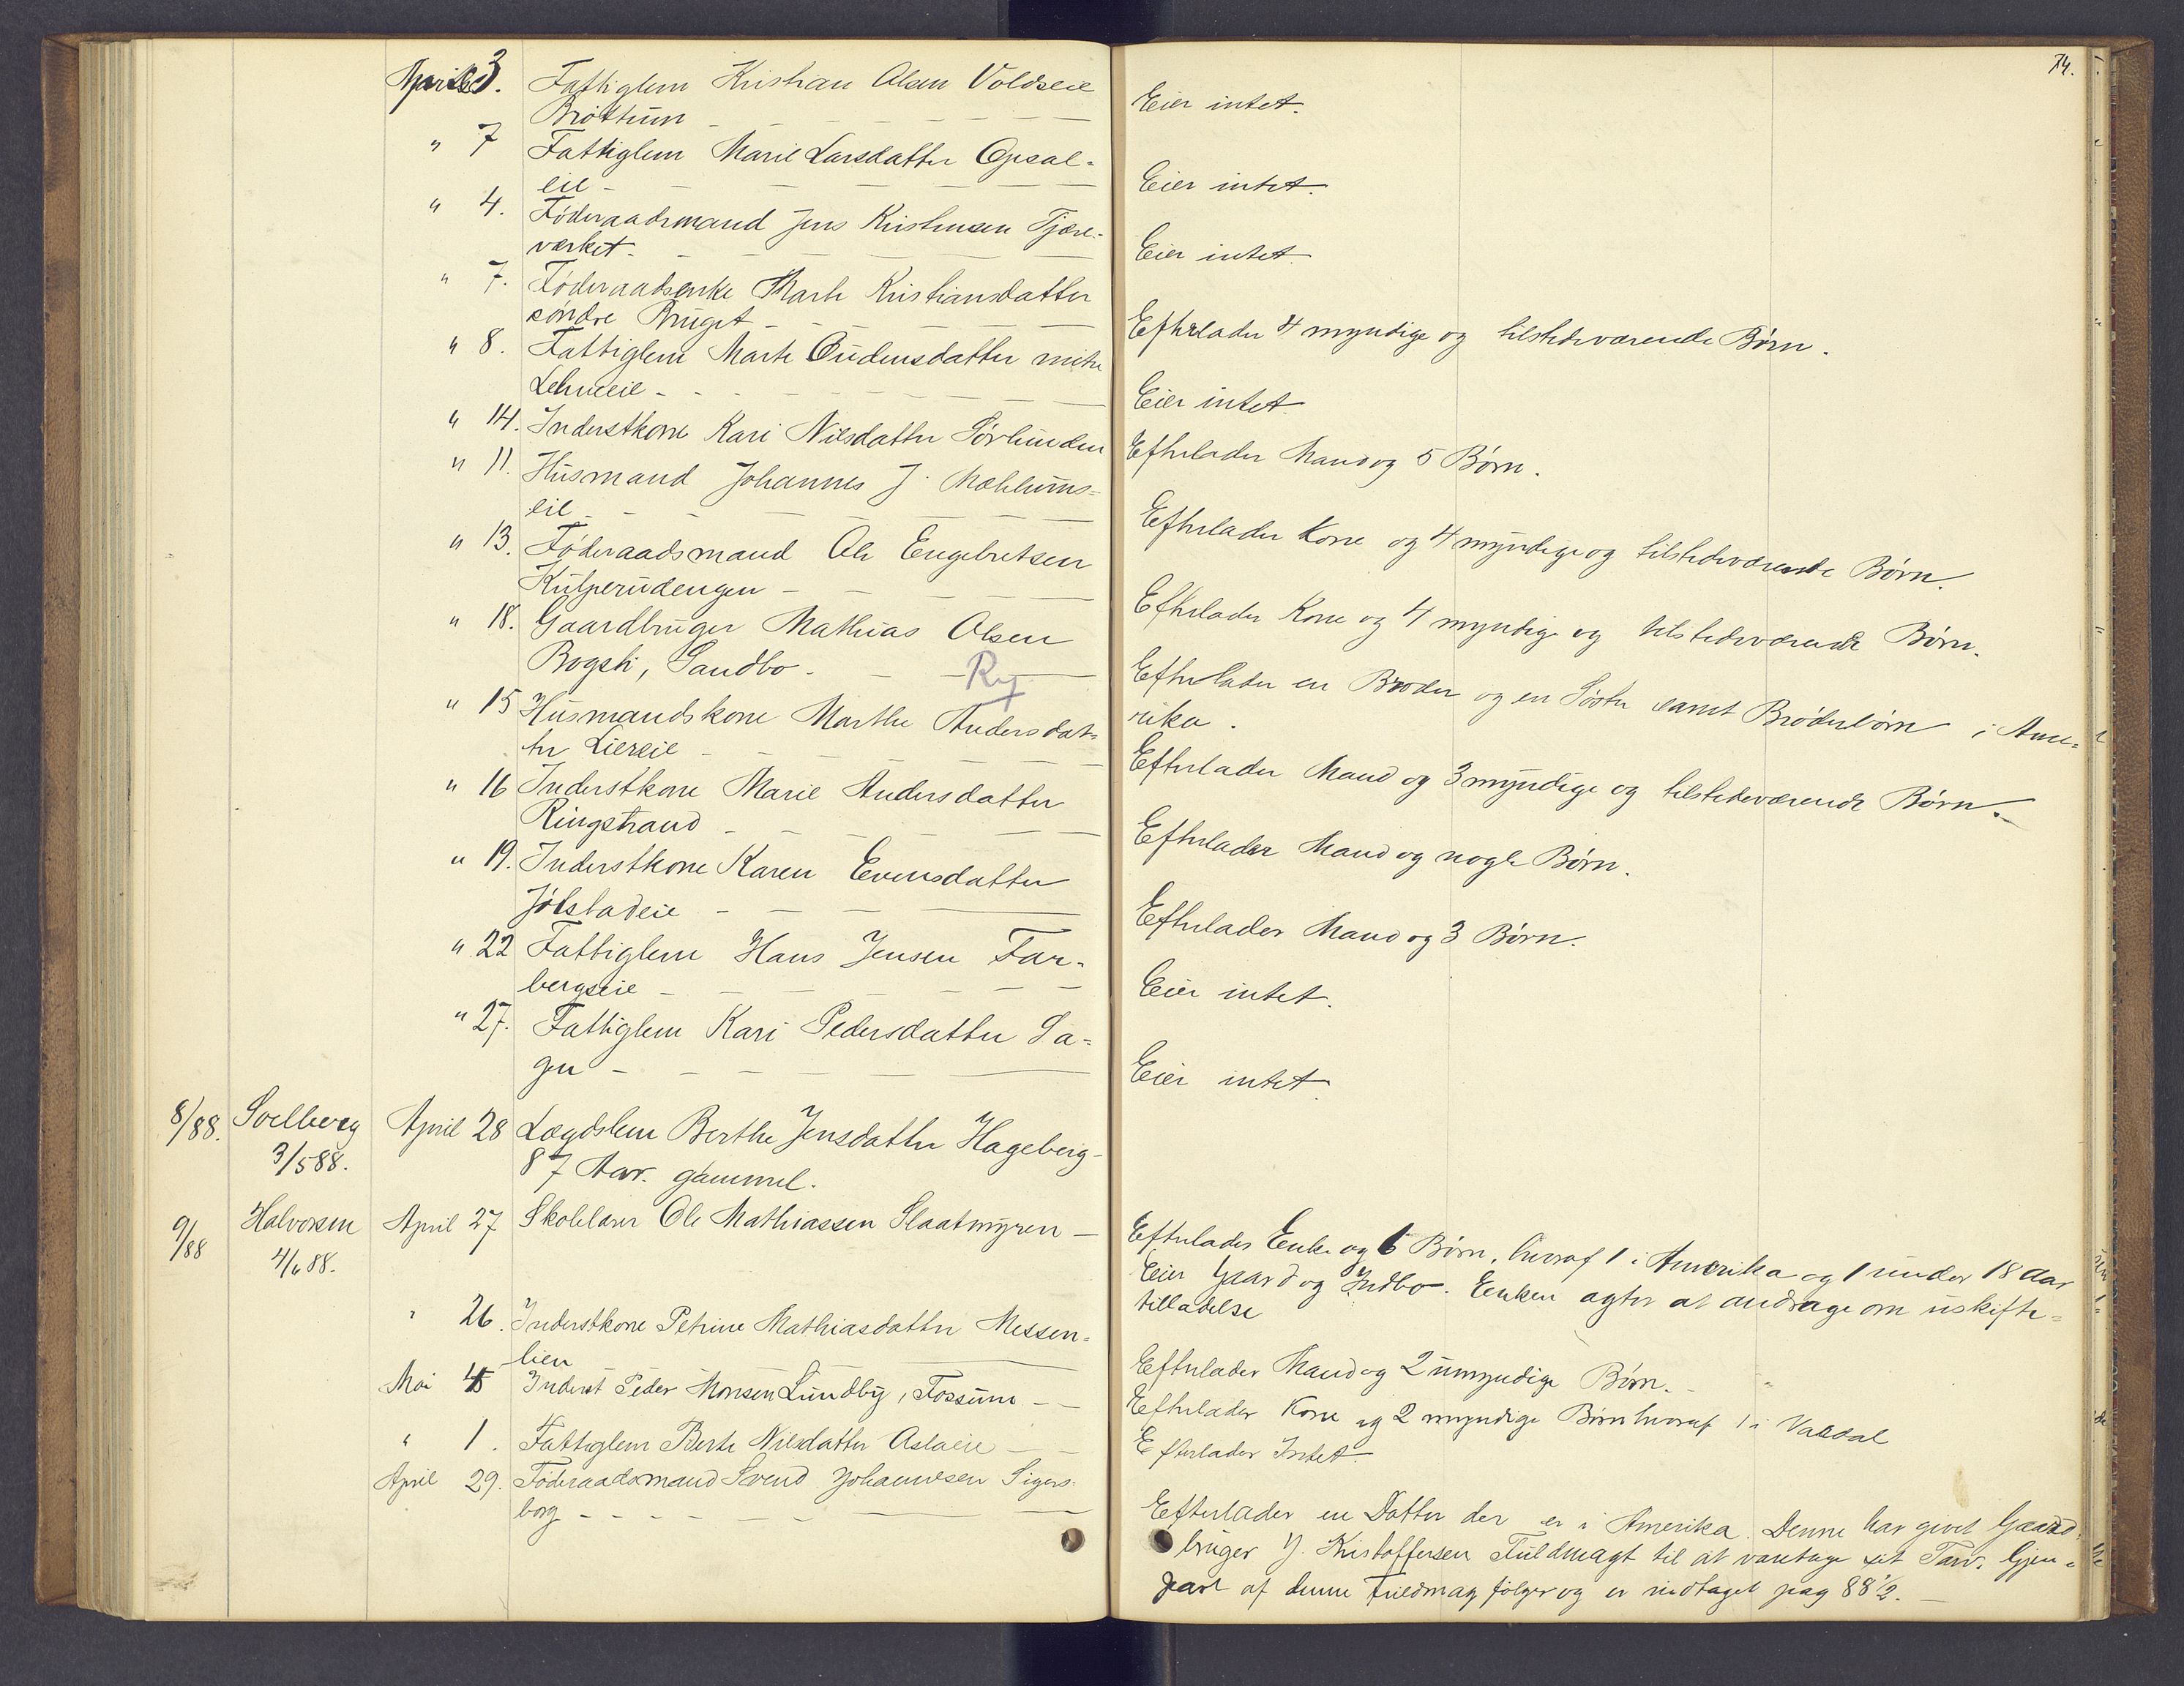 74.
April 3. Fattiglem Kristian Olsen Voldseie
Brøttum
Eier intet.
" 7 Fattiglem Marie Larsdatter Opsal-
eie
Eier intet.
" 4. Føderaadsmand Jens Kristensen Tjære-
værket
Eier intet.
" 7. Føderaadsenke Marte Kristiansdatter
søndre Bruget
Efterlader 4 myndige og tilstedeværende Børn.
" 8. Fattiglem Marte Gudensdatter
Eier intet.
" 14. Inderstkone Kari Nilsdatter Sørlunden
Efterlader Mand og 5 Børn.
" 11. Husmand Johannes J. Mæhlums-
eie
Efterlader Kone og 4 myndige og tilstedeværende Børn.
" 13. Føderaadsmand Ole Engebretsen
Kulperudengen
Efterlader Kone og 4 myndige og tilstedeværende Børn.
" 18. Gaardbruger Mathias Olsen
Bogsti, Sandbo.
Efterlader en Broder og en Søster samt Brøderbørn i Ame-
rika.
" 15 Husmandskone Marthe Andersdat-
ter Liereie
Efterlader Mand og 3 myndige og tilstedeværende Børn.
" 16 Inderstkone Marie Andersdatter
Ringstrand
Efterlader Mand og nogle Børn.
" 19. Inderstkone Karen Evensdatter
Jølstadeie
Efterlader Mand og 3 Børn.
" 22 Fattiglem Hans Jensen Far-
bergseie
Eier intet.
" 27. Fattiglem Kari Pedersdatter Sa-
gen
Eier intet
8/88. Soelberg April 28 Lægdslem Berthe Jensdatter Hageberg
3/5 88. 87 Aar. gammel.
9/88 Halvorsen April 27 Skolelærer Ole Mathiassen Slaatmyren
4/6 88.
Efterlader Enke og 6 Børn, hvoraf 1 i Amerika og 1 under 18 Aar
Eier Gaard og Indbo. Enken agter at andrage om uskifte-
tilladelse
" 26. Inderstkone Petrine Mathiasdatter Messen-
lien
Efterlader Mand og 2 umyndige Børn.
Mai Inderst Peder Monsen Lundby, Fossum
Efterlader Kone og 2 myndige Børn hvoraf 1 i
" 1. Fattiglem Berte Nilsdatter Aslaeie
Efterlader Intet.
April 29. Føderaadsmand Svend Johannesen Sigers-
borg
Efterlader en Datter der er i Amerika. Denne har givet Gaard-
bruger J. Kristoffersen Fuldmagt til at varetage sit Tarv. Gjen-
part af denne Fuldmag følger og er indtaget pag 88 1/2.